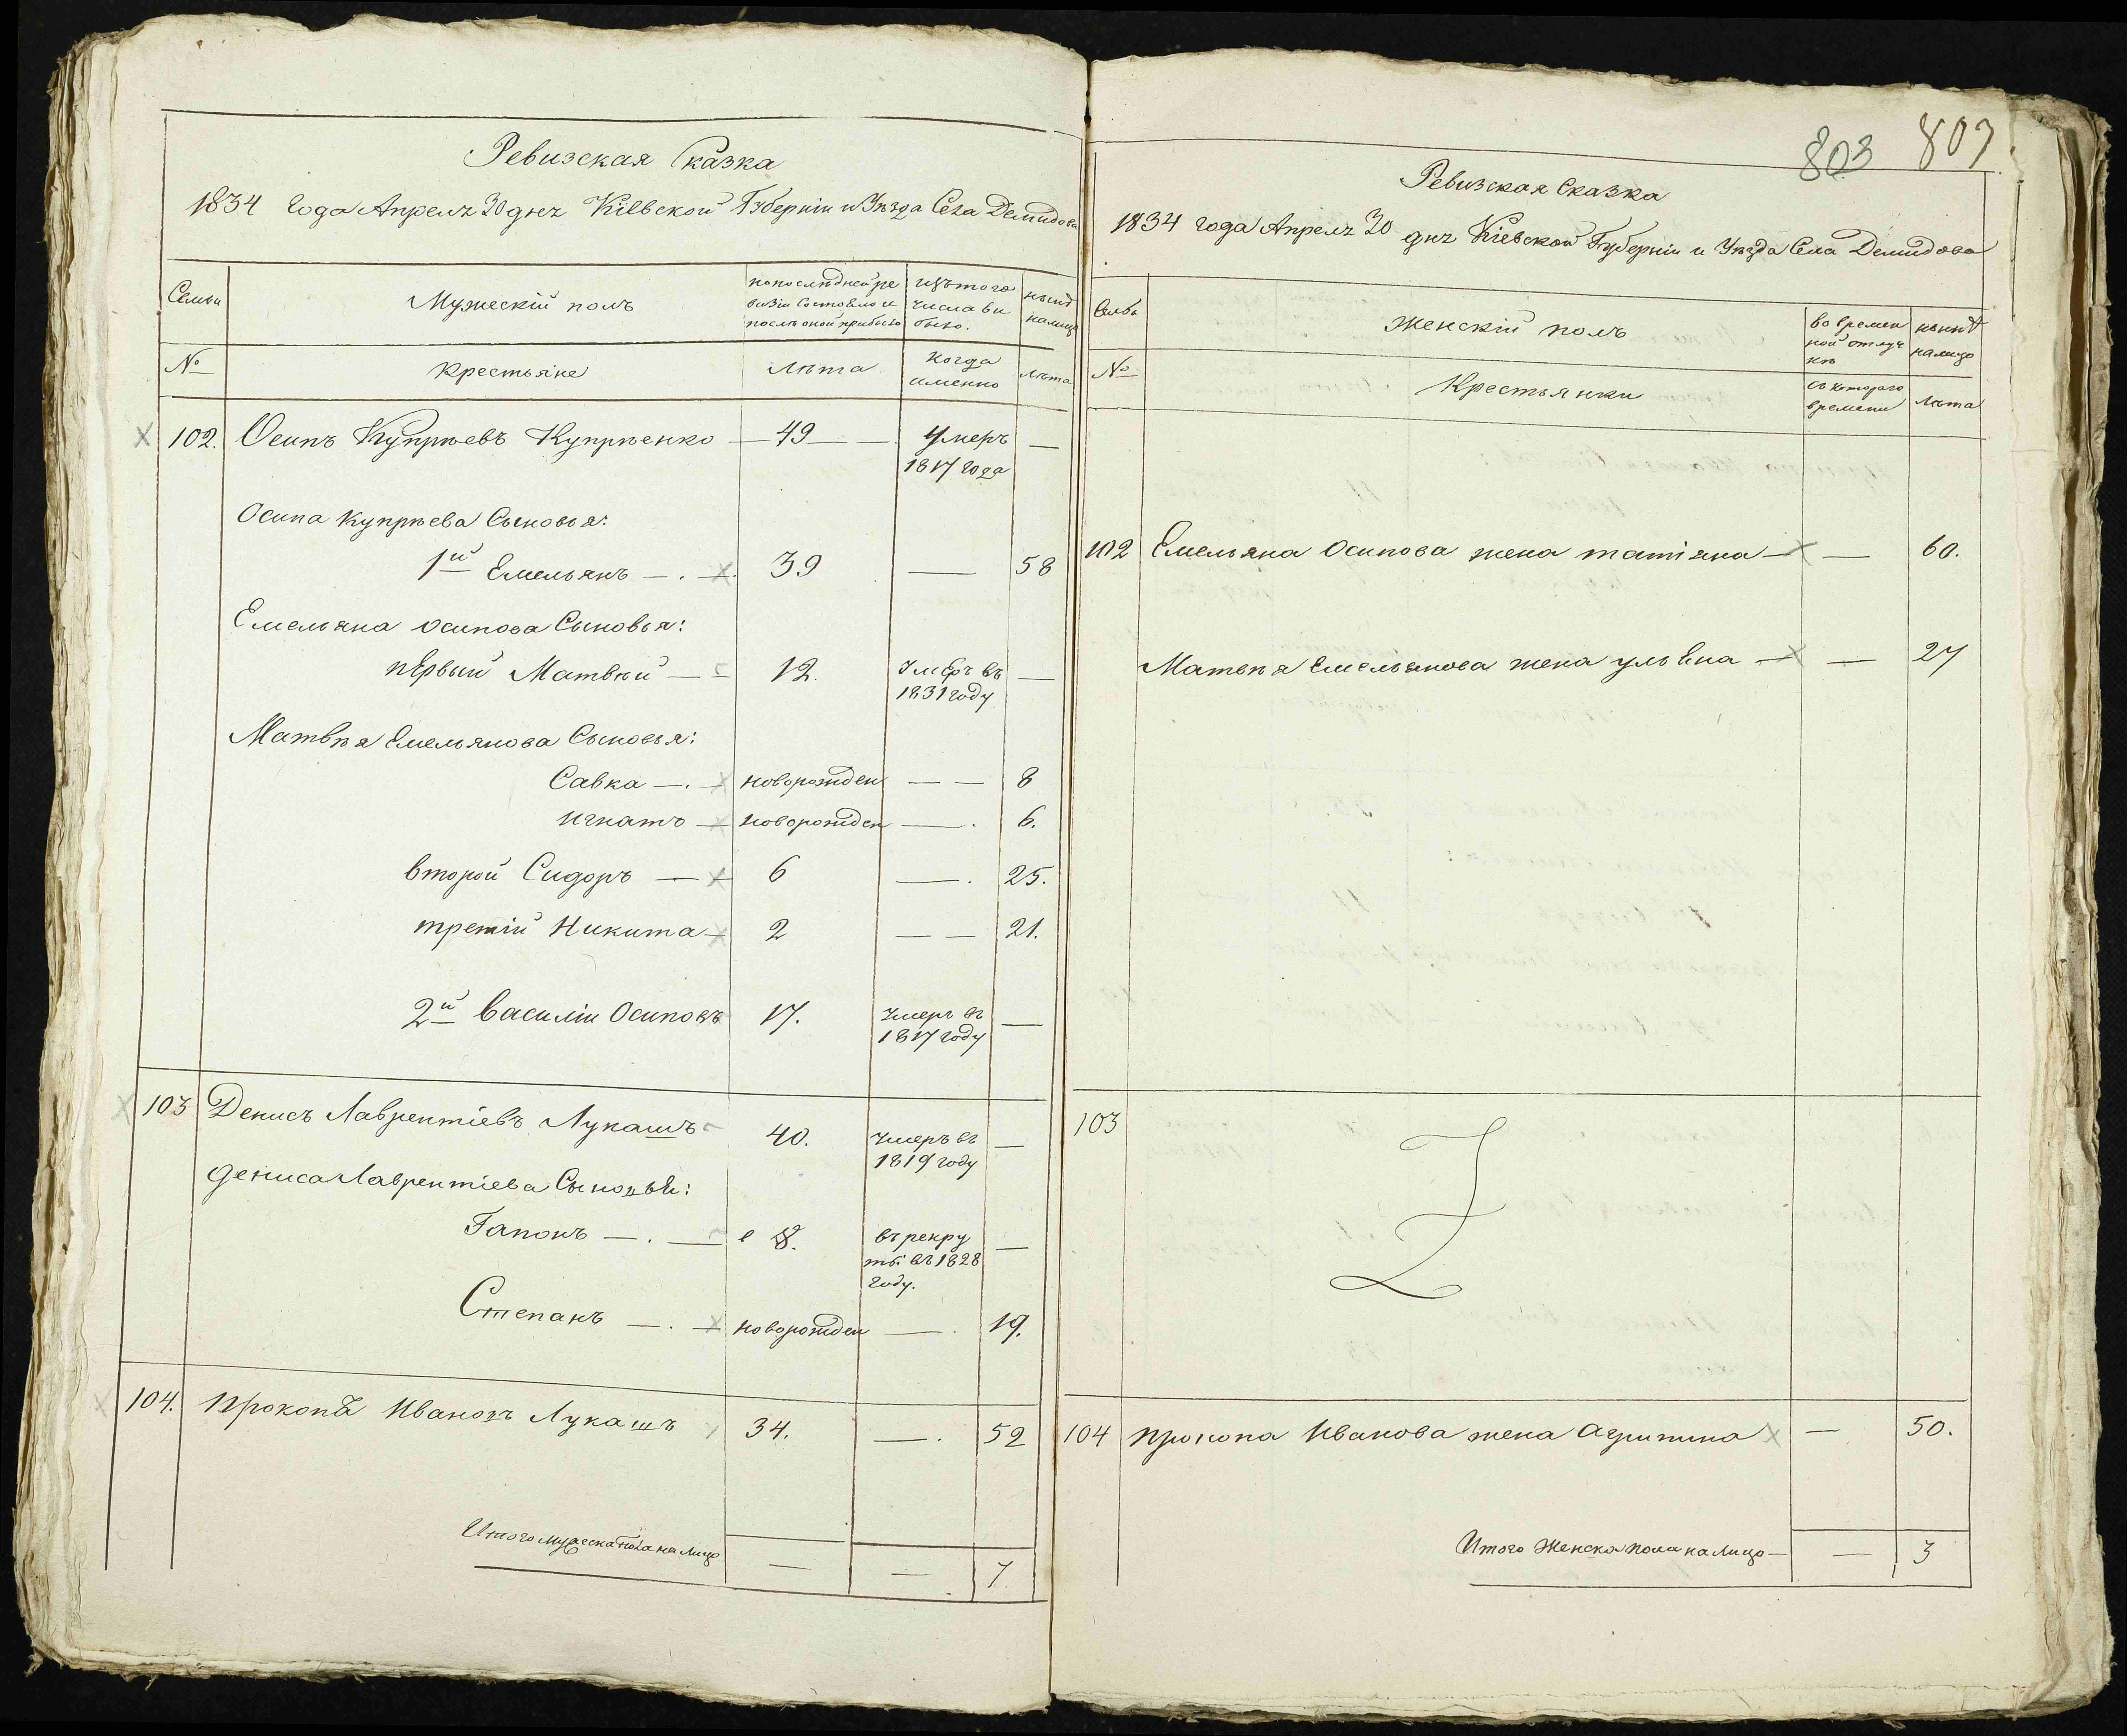 Ревизская Сказка
1834 года Апреля 30 дня Кіевской Губерніи и Уѣзда Села Демидова
Семьи
Мужескій полъ
по послѣдней ре
визіи Состояло и
послѣ оной прибыло
изъ того
числа вы
было.
нынѣ
налицо
№
Крестьяне
Лѣта
Когда
именно
Лѣта
102. Осипъ Купрѣевъ Купрѣенко — 49 — Умеръ —
1817 года
Осипа Купрѣева Сыновья:
1й Емельянъ —.— 39 — 58
Емельяна Осипова Сыновья:
первый Матвѣй — 12. Умеръ въ —
1831 году
Матвѣя Емельянова Сыновья:
Савка —.— новорожден — — 8
Игнатъ — новорожден —. 6.
второй Сидоръ — 6 —. 25.
третій Никита — 2 — — 21.
2й Василій Осиповъ 17. Умеръ въ —
1817 году
103 Денисъ Лаврентіевъ Лукашъ 40. Умеръ въ —
1819 году
Дениса Лаврентіева Сыновья:
Гапонъ —.— 8. въ рекру —
ты въ 1828
году.
Степанъ —.— новорожден —. 19.
104. Прокопъ Ивановъ Лукашъ 34. —. 52
Итого мужеска пола на лицо — — 7
803 807
Ревизская Сказка
1834 года Апреля 30 дня Кіевской Губерніи и Уѣзда Села Демидова
Семьи
Женскій полъ
во времен
ной отлуч
кѣ
нынѣ
налицо
№
Крестьянки
съ котораго
времени
Лѣта
102 Емельяна Осипова жена Татіяна — — 60.
Матвѣя Емельянова жена Ульяна — — 27
103
104 Прокопа Иванова жена Агрипина — 50.
Итого Женска пола на лицо — — 3